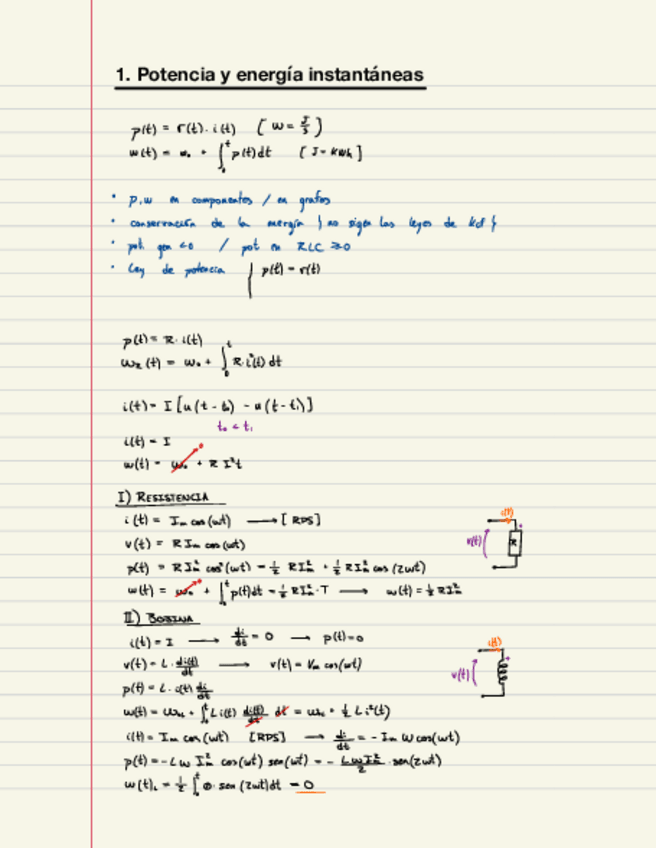 1. Potencia y energía instantáneas
p(t) = v(t) · i(t) [ W = J/s ]
w(t) = w₀ + ∫₀ᵗ p(t) dt [ J - kWh ]
• p, w en componentes / en grafos
• conservación de la energía } no sigen las leyes de kcf }
• pot. gen <0 / pot en RLC ≥0
• Ley de potencia | p(t) = v(t)
p(t) = R · i(t)
w_R(t) = w₀ + ∫₀ᵗ R · i²(t) dt
i(t) = I [u(t - t₀) - u(t - t₁)]
t₀ < t₁
i(t) = I
w(t) = w₀ 0 + R I² t
I) RESISTENCIA
i(t) = Iₘ cos(wt) → [RPS]
i(t)
v(t) = R Iₘ cos(wt)
v(t) R
p(t) = R Iₘ² cos²(wt) = ½ R Iₘ² + ½ R Iₘ² cos(2wt)
w(t) = w₀ 0 + ∫₀ᵗ p(t) dt = ½ R Iₘ² · T → w(t) = ½ R Iₘ²
II) BOBINA
i(t) = I → di/dt = 0 → p(t) = 0
i(t)
v(t) = L · di(t)/dt → v(t) = Vₘ cos(wt)
v(t)
p(t) = L · i(t) di/dt
w(t) = w₀ + ∫₀ᵗ L i(t) di(t)/dt dt = w₀ + ½ L i²(t)
i(t) = Iₘ cos(wt) [RPS] → di/dt = - Iₘ w cos(wt)
p(t) = - L w Iₘ² cos(wt) sen(wt) = - L w Iₘ²/2 · sen(2wt)
w(t)_L = ½ ∫₀ᵗ · sen(2wt) dt = 0